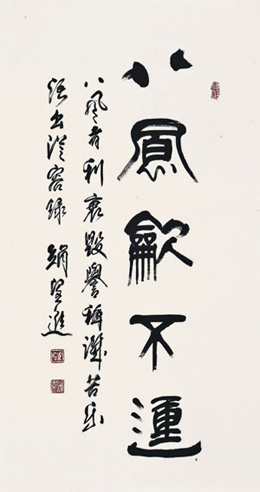 八風龡不動
八風者利衰毀譽稱譏苦樂
語出從容錄 趙望進